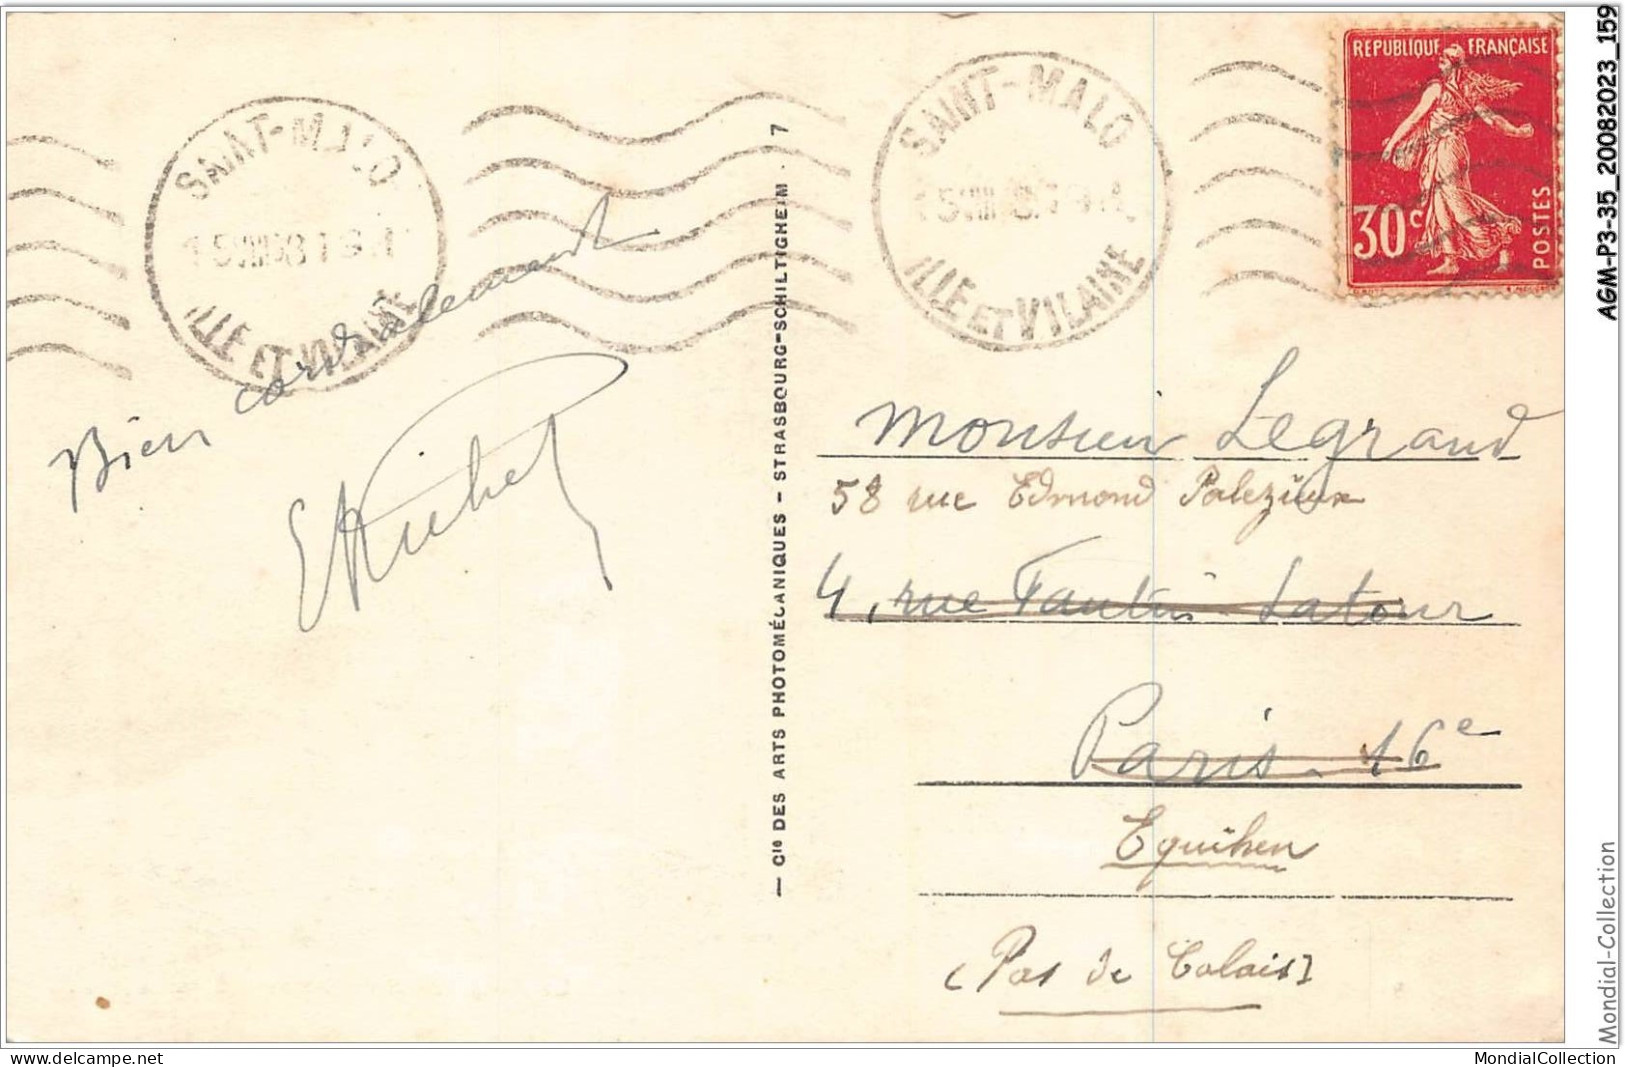 SAINT-MALO
ILLE ET VILAINE
SAINT-MALO
ILLE ET VILAINE
REPUBLIQUE FRANÇAISE
30c
POSTES
Bien cordialement
— Cie DES ARTS PHOTOMÉCANIQUES - STRASBOURG-SCHILTIGHEIM - 7
Monsieur Legrand
58 rue Edmond Palezieux
4, rue Fantin-Latour
Paris. 16e
Equihen
(Pas de Calais)
AGM-P3-35_20082023_159
Mondial-Collection
www.delcampe.net
MondialCollection